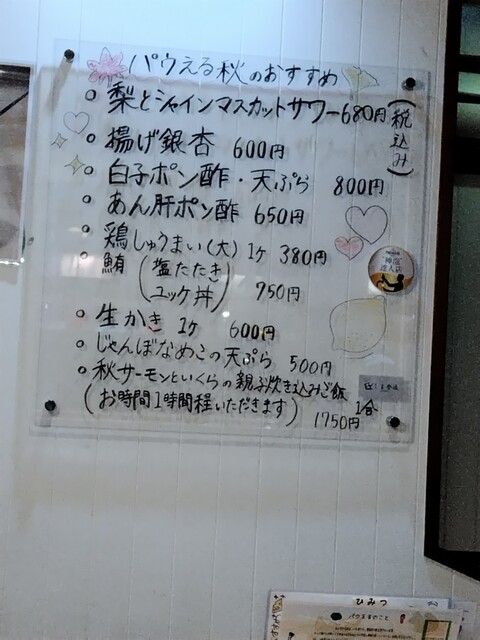 パウえる秋のおすすめ
○ 梨とシャインマスカットサワー 680円
(税込み)
○ 揚げ銀杏 600円
○ 白子ポン酢・天ぷら 800円
○ あん肝ポン酢 650円
○ 鶏しゅうまい(大) 1ケ 380円
○ 鮪 (塩たたき
ユッケ丼) 950円
○ 生かき 1ケ 600円
○ じゃんぼなめこの天ぷら 500円
○ 秋サーモンといくらの親子炊き込みご飯
1合
(お時間1時間程いただきます) 1750円
達人店
ひみつ